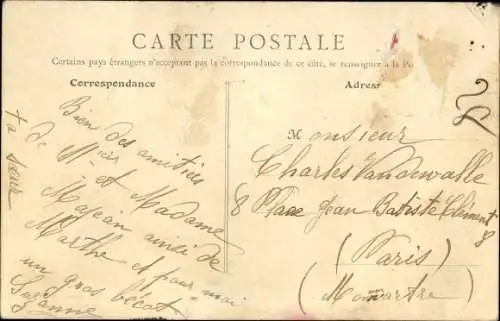 CARTE POSTALE
Certains pays étrangers n'acceptent pas la correspondance de ce côté, se renseigner à la Po
Correspondance
Adres
Bien des amitiés
de Mr et Madame
Majean ainsi de
Marthe et pour moi
un gros bécot
Suzanne
Ta sœur
Monsieur
Charles Vandewalle
8 Place Jean Batiste Clément 8
(Paris)
(Monmartre)